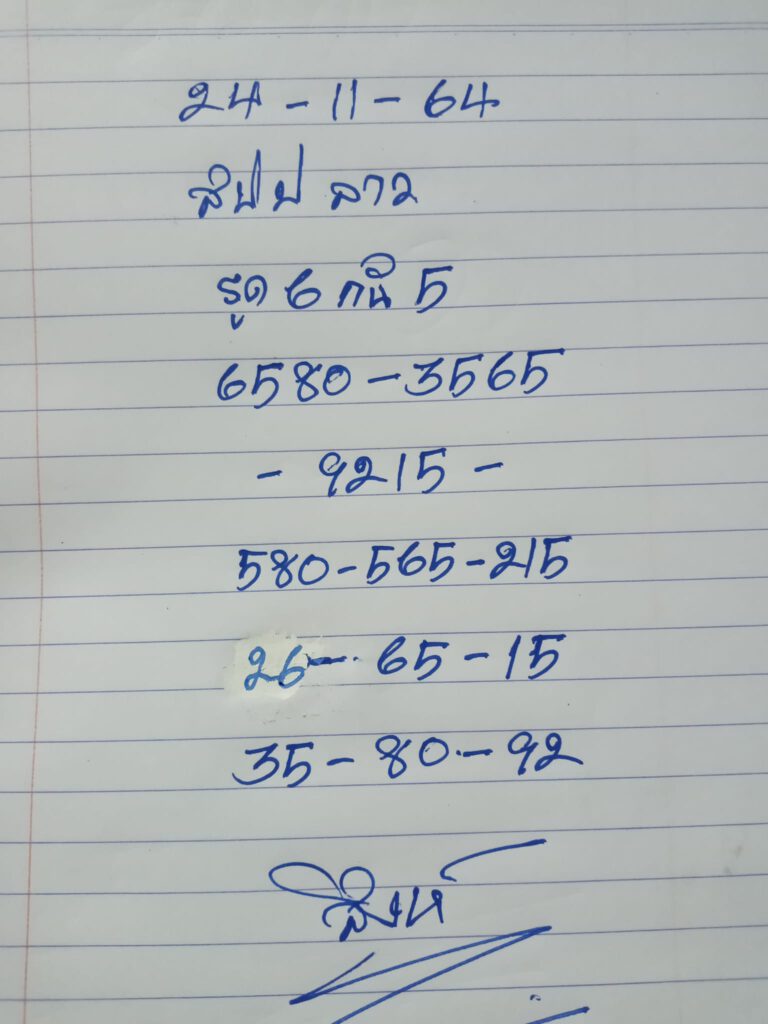 24 - 11 - 64
สิปป ลาว
รูด 6 กัน 5
6580 - 3565
- 9215 -
580 - 565 - 215
26 - 65 - 15
35 - 80 - 92
สิงห์